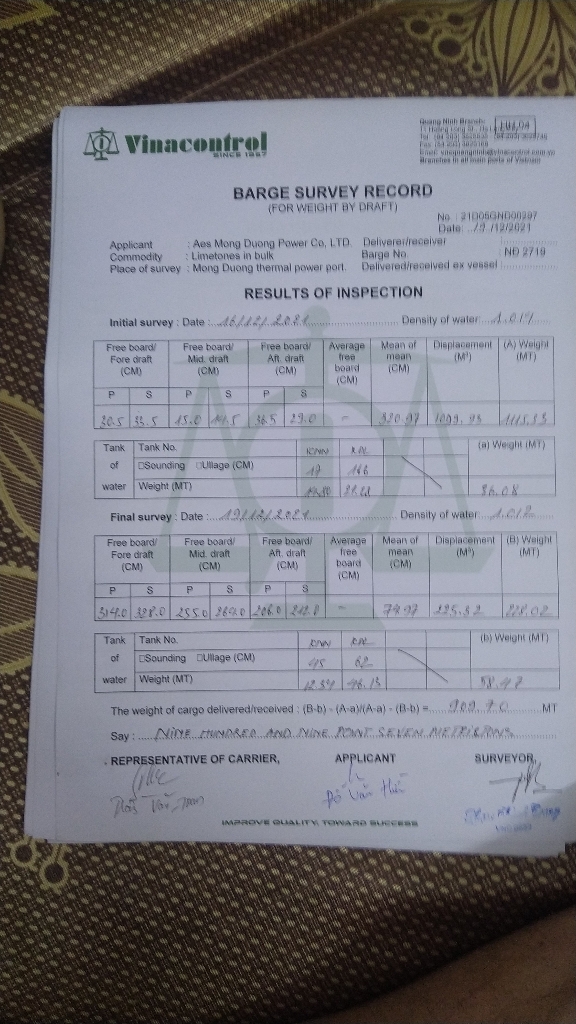 Vinacontrol
SINCE 1957
Quang Ninh Branch:
Branches in all main ports of Vietnam
BARGE SURVEY RECORD
(FOR WEIGHT BY DRAFT)
No. : 21D05GND00297
Date: ../9../12/2021
Applicant : Aes Mong Duong Power Co, LTD. Deliverer/receiver
Commodity : Limetones in bulk Barge No. NĐ 2719
Place of survey : Mong Duong thermal power port. Delivered/received ex vessel :
RESULTS OF INSPECTION
Initial survey : Date : 16/12/2021 Density of water: 1.017
Free board/ Fore draft (CM) Free board/ Mid. draft (CM) Free board/ Aft. draft (CM) Average free board (CM) Mean of mean (CM) Displacement (M³) (A) Weight (MT)
P S P S P S
30.5 33.5 15.0 14.5 36.5 29.0 - 320.97
Tank of water Tank No. (a) Weight (MT)
□Sounding □Ullage (CM) 17 166
Weight (MT) 96.08
Final survey : Date : 19/12/2021 Density of water: 1.012
Free board/ Fore draft (CM) Free board/ Mid. draft (CM) Free board/ Aft. draft (CM) Average free board (CM) Mean of mean (CM) Displacement (M³) (B) Weight (MT)
P S P S P S
314.0 328.0 255.0 264.0 206.0 212.0 - 79.97 225.32 228.02
Tank of water Tank No. (b) Weight (MT)
□Sounding □Ullage (CM) 45 62
Weight (MT) 12.34 46.13 58.47
The weight of cargo delivered/received : (B-b) - (A-a)/(A-a) - (B-b) = 909.70 MT
Say : NINE HUNDRED AND NINE POINT SEVEN METRICTONS
REPRESENTATIVE OF CARRIER, APPLICANT SURVEYOR,
Đỗ Văn
IMPROVE QUALITY, TOWARD SUCCESS